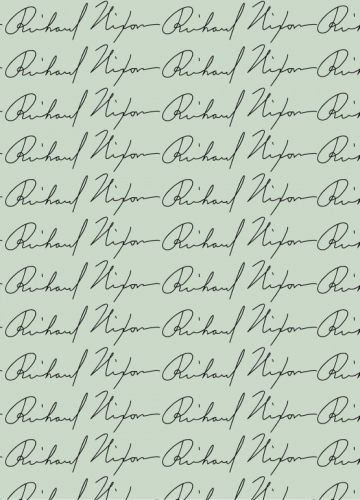 Richard Nixon Richard Nixon Ri
Richard Nixon Richard Nixon Ri
Richard Nixon Richard Nixon Ri
Richard Nixon Richard Nixon Ri
Richard Nixon Richard Nixon Ri
Richard Nixon Richard Nixon Ri
Richard Nixon Richard Nixon Ri
Richard Nixon Richard Nixon Ri
Richard Nixon Richard Nixon Ri
Richard Nixon Richard Nixon Ri
Richard Nixon Richard Nixon Ri
Richard Nixon Richard Nixon Ri